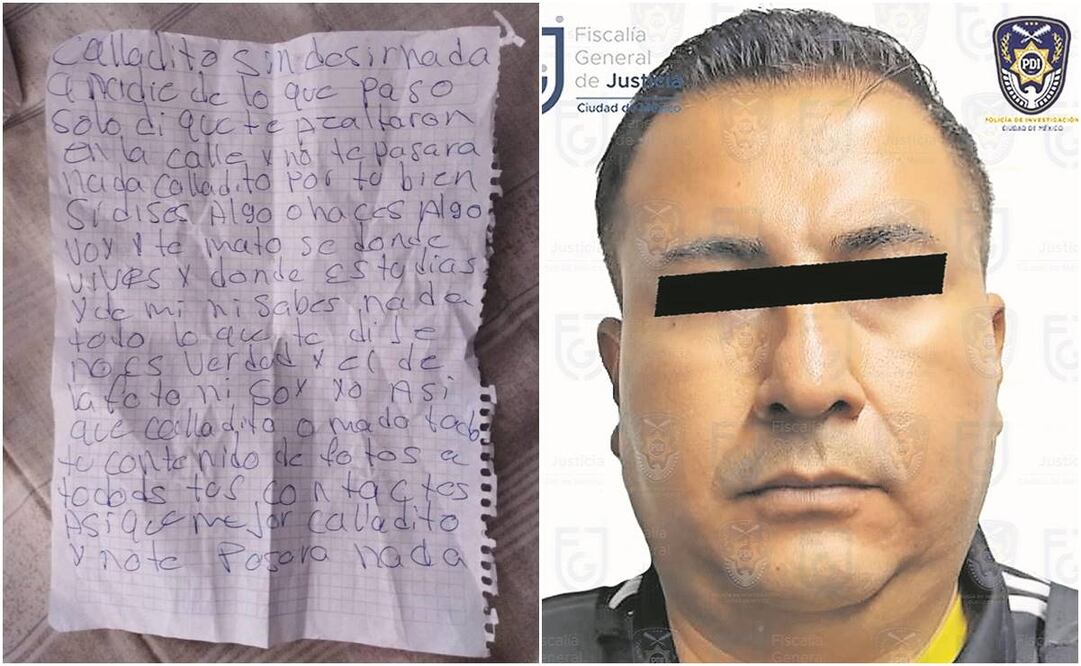 Calladito sin desir nada
a nadie de lo que paso
solo di que te asaltaron
en la calle y no te pasara
nada calladito por tu bien
Si dises Algo o haces Algo
voy y te mato se donde
vives y donde Estudias
y de mi ni sabes nada
todo lo que te dije
no es verdad y el de
la foto ni soy yo Asi
que calladito o mado todo
tu contenido de fotos a
todods tus contactos
Asi que mejor calladito
y note Pasara nada
Fiscalía
General
de Justicia
Ciudad de México
PDI
POLICÍA DE INVESTIGACIÓN
CIUDAD DE MÉXICO